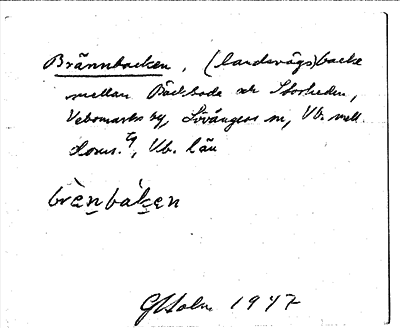 Brännbacken, (landsvägs)backe
mellan Bäckboda och Storheden,
Vebomarks by, Lövångers sn, Vb. mell.
doms. tg, Vb. län
brènbáken
GHolm 1947